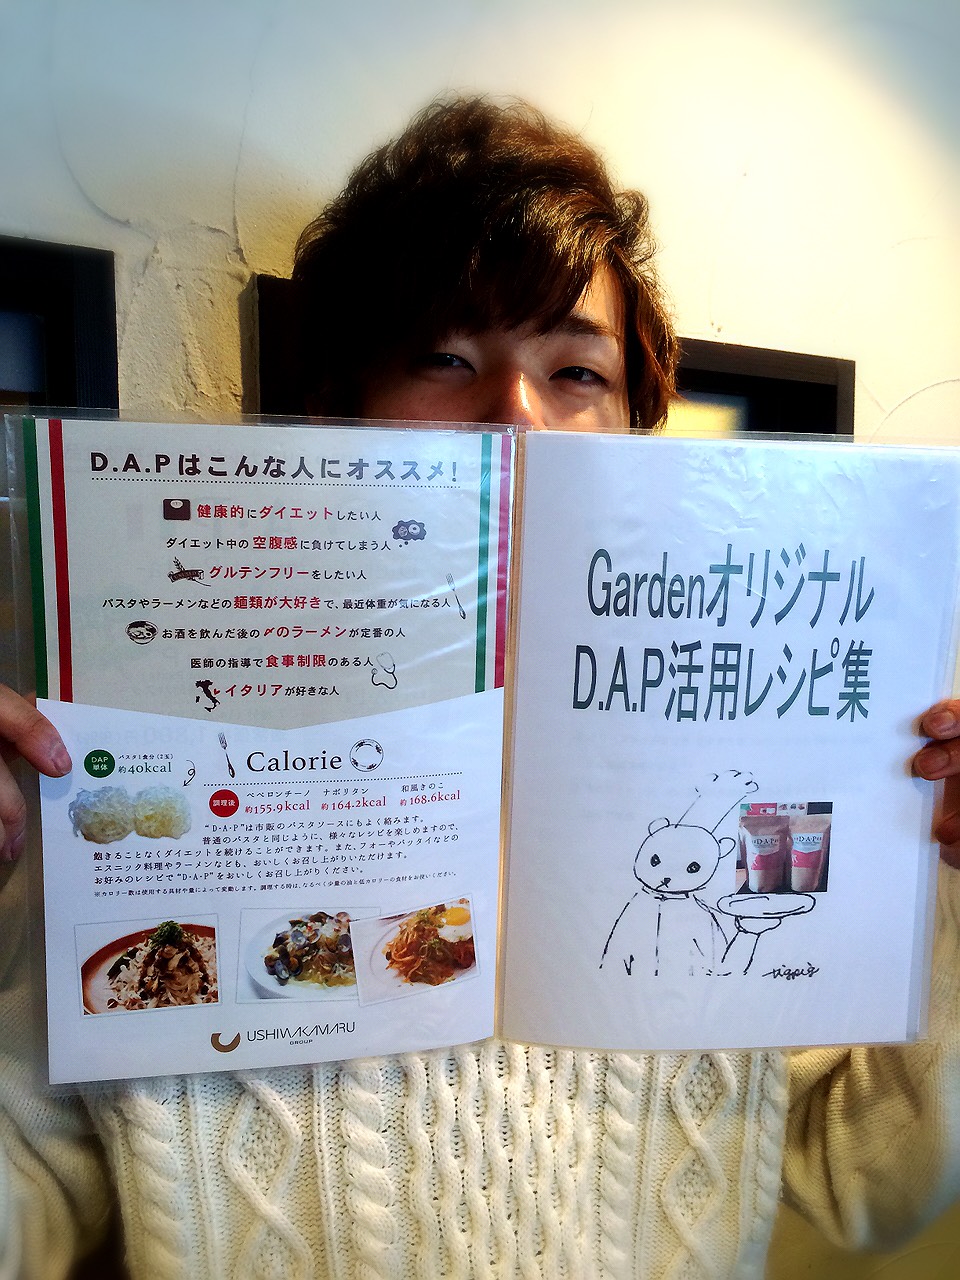 D.A.Pはこんな人にオススメ!
健康的にダイエットしたい人
ダイエット中の空腹感に負けてしまう人
グルテンフリーをしたい人
パスタやラーメンなどの麺類が大好きで、最近体重が気になる人
お酒を飲んだ後の〆のラーメンが定番の人
医師の指導で食事制限のある人
イタリアが好きな人
DAP
単体
パスタ1食分(2玉)
約40kcal
Calorie
調理後
ペペロンチーノ
約155.9kcal
ナポリタン
約164.2kcal
和風きのこ
約168.6kcal
"D・A・P"は市販のパスタソースにもよく絡みます。
普通のパスタと同じように、様々なレシピを楽しめますので、
飽きることなくダイエットを続けることができます。また、フォーやパッタイなどの
エスニック料理やラーメンなども、おいしくお召し上がりいただけます。
お好みのレシピで"D・A・P"をおいしくお召し上がりください。
※カロリー数は使用する具材や量によって変動します。調理する時は、なるべく少量の油と低カロリーの食材をお使いください。
USHIWAKAMARU
GROUP
Gardenオリジナル
D.A.P活用レシピ集
D・A・P
D・A・P